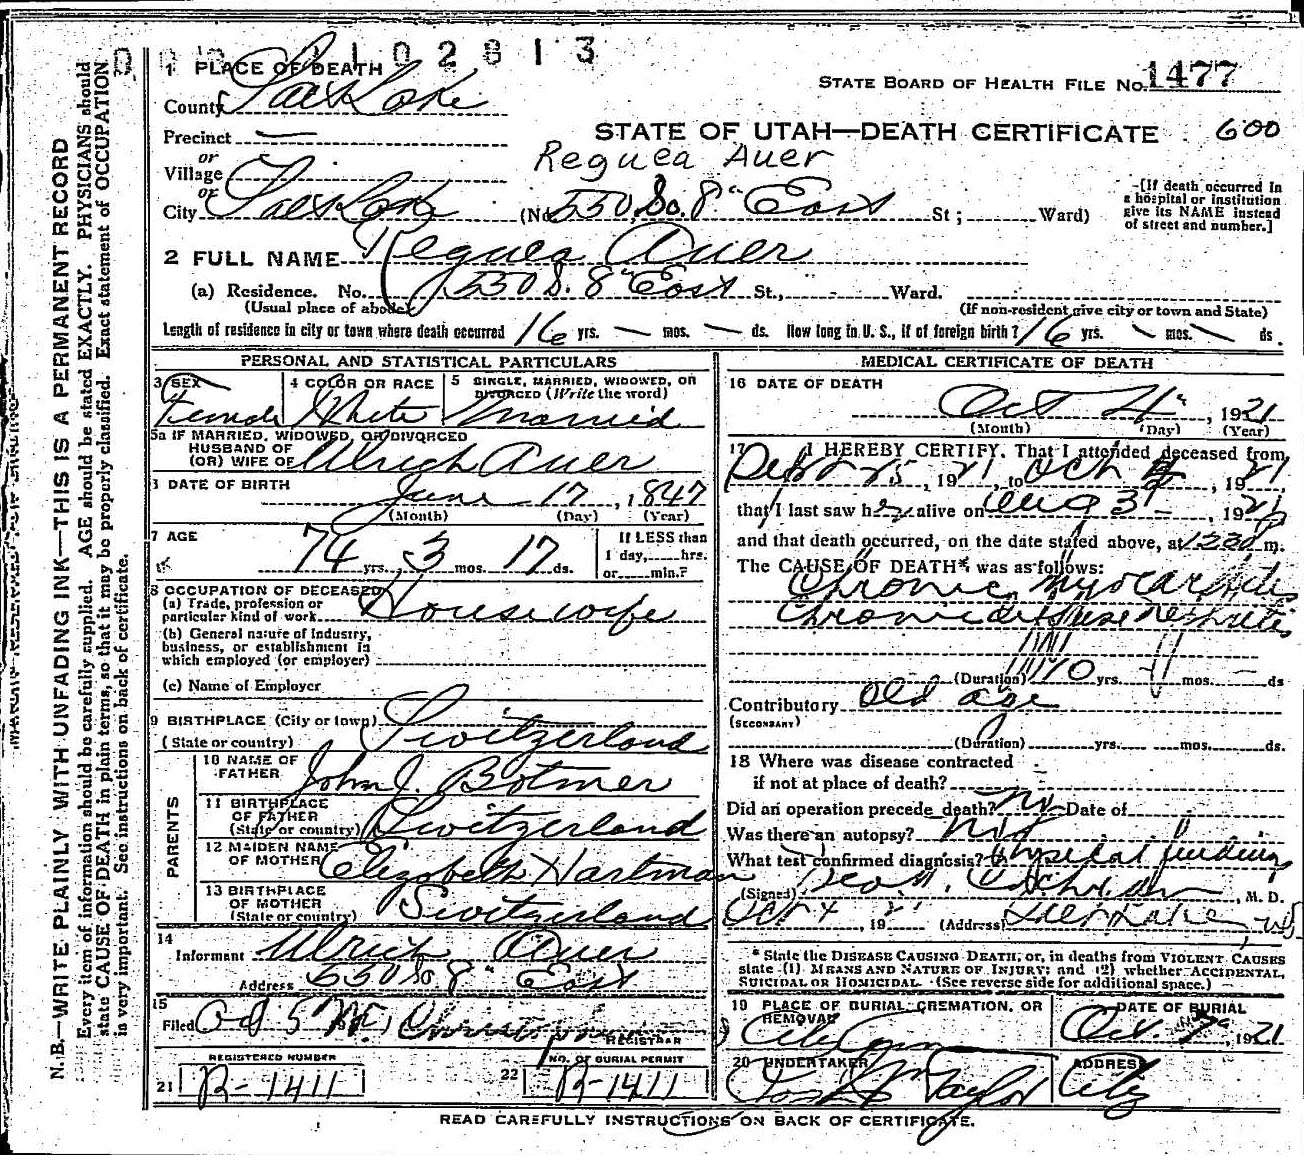 0 1 0 2 8 1 3
STATE BOARD OF HEALTH FILE No. 1477
1 PLACE OF DEATH
County Salt Lake
Precinct —
STATE OF UTAH—DEATH CERTIFICATE 600
or
Village
Reguea Auer
or
City Salt Lake (No. 550 So. 8" East St; Ward)
[If death occurred in a hospital or institution give its NAME instead of street and number.]
2 FULL NAME Reguea Auer
(a) Residence. No. 550 S. 8" East St., - Ward.
(Usual place of abode) (If non-resident give city or town and State)
Length of residence in city or town where death occurred 16 yrs. — mos. — ds. How long in U. S., if of foreign birth? 16 yrs. — mos. — ds.
PERSONAL AND STATISTICAL PARTICULARS
3 SEX Female
4 COLOR OR RACE White
5 SINGLE, MARRIED, WIDOWED, OR DIVORCED (Write the word) Married
5a IF MARRIED, WIDOWED, OR DIVORCED
HUSBAND OF
(OR) WIFE OF Ulrich Auer
DATE OF BIRTH June 17, 1847
(Month) (Day) (Year)
7 AGE 74 yrs. 3 mos. 17 ds.
If LESS than
1 day, hrs.
or min.?
8 OCCUPATION OF DECEASED
(a) Trade, profession or
particular kind of work Housewife
(b) General nature of Industry,
business, or establishment in
which employed (or employer)
(c) Name of Employer
9 BIRTHPLACE (City or town)
(State or country) Switzerland
PARENTS
10 NAME OF
FATHER John J. Botmer
11 BIRTHPLACE
OF FATHER
(State or country) Switzerland
12 MAIDEN NAME
OF MOTHER Elizabeth Hartman
13 BIRTHPLACE
OF MOTHER
(State or country) Switzerland
14
Informant Ulrich Auer
Address 550 So 8" East
15
Filed Oct 5
REGISTRAR
REGISTERED NUMBER
21 R-1411
NO. OF BURIAL PERMIT
22 R-1411
MEDICAL CERTIFICATE OF DEATH
16 DATE OF DEATH
Oct 4", 1921
(Month) (Day) (Year)
17 I HEREBY CERTIFY, That I attended deceased from
25, 1921, to Oct 4, 1921,
that I last saw her alive on Aug 3, 1921,
and that death occurred, on the date stated above, at 1230 m.
The CAUSE OF DEATH* was as follows:
Chronic myocarditis
Chronic diffuse nephritis
(Duration) 10 yrs. mos. — ds
Contributory Old age
(SECONDARY)
(Duration) yrs. mos. ds.
18 Where was disease contracted
if not at place of death?
Did an operation precede death? No Date of
Was there an autopsy? No
What test confirmed diagnosis? Physical findings
(Signed) , M. D.
Oct 4, 192 (Address) Salt Lake
* State the DISEASE CAUSING DEATH, or, in deaths from VIOLENT CAUSES
state (1) MEANS AND NATURE OF INJURY; and (2) whether ACCIDENTAL,
SUICIDAL OR HOMICIDAL. (See reverse side for additional space.)
19 PLACE OF BURIAL, CREMATION, OR
REMOVAL City Cem
DATE OF BURIAL
Oct. 7, 1921
20 UNDERTAKER
Taylor
ADDRESS
City
READ CAREFULLY INSTRUCTIONS ON BACK OF CERTIFICATE.
N.B.—WRITE PLAINLY WITH UNFADING INK—THIS IS A PERMANENT RECORD
Every item of information should be carefully supplied. AGE should be stated EXACTLY. PHYSICIANS should
state CAUSE OF DEATH in plain terms, so that it may be properly classified. Exact statement of OCCUPATION
is very important. See instructions on back of certificate.